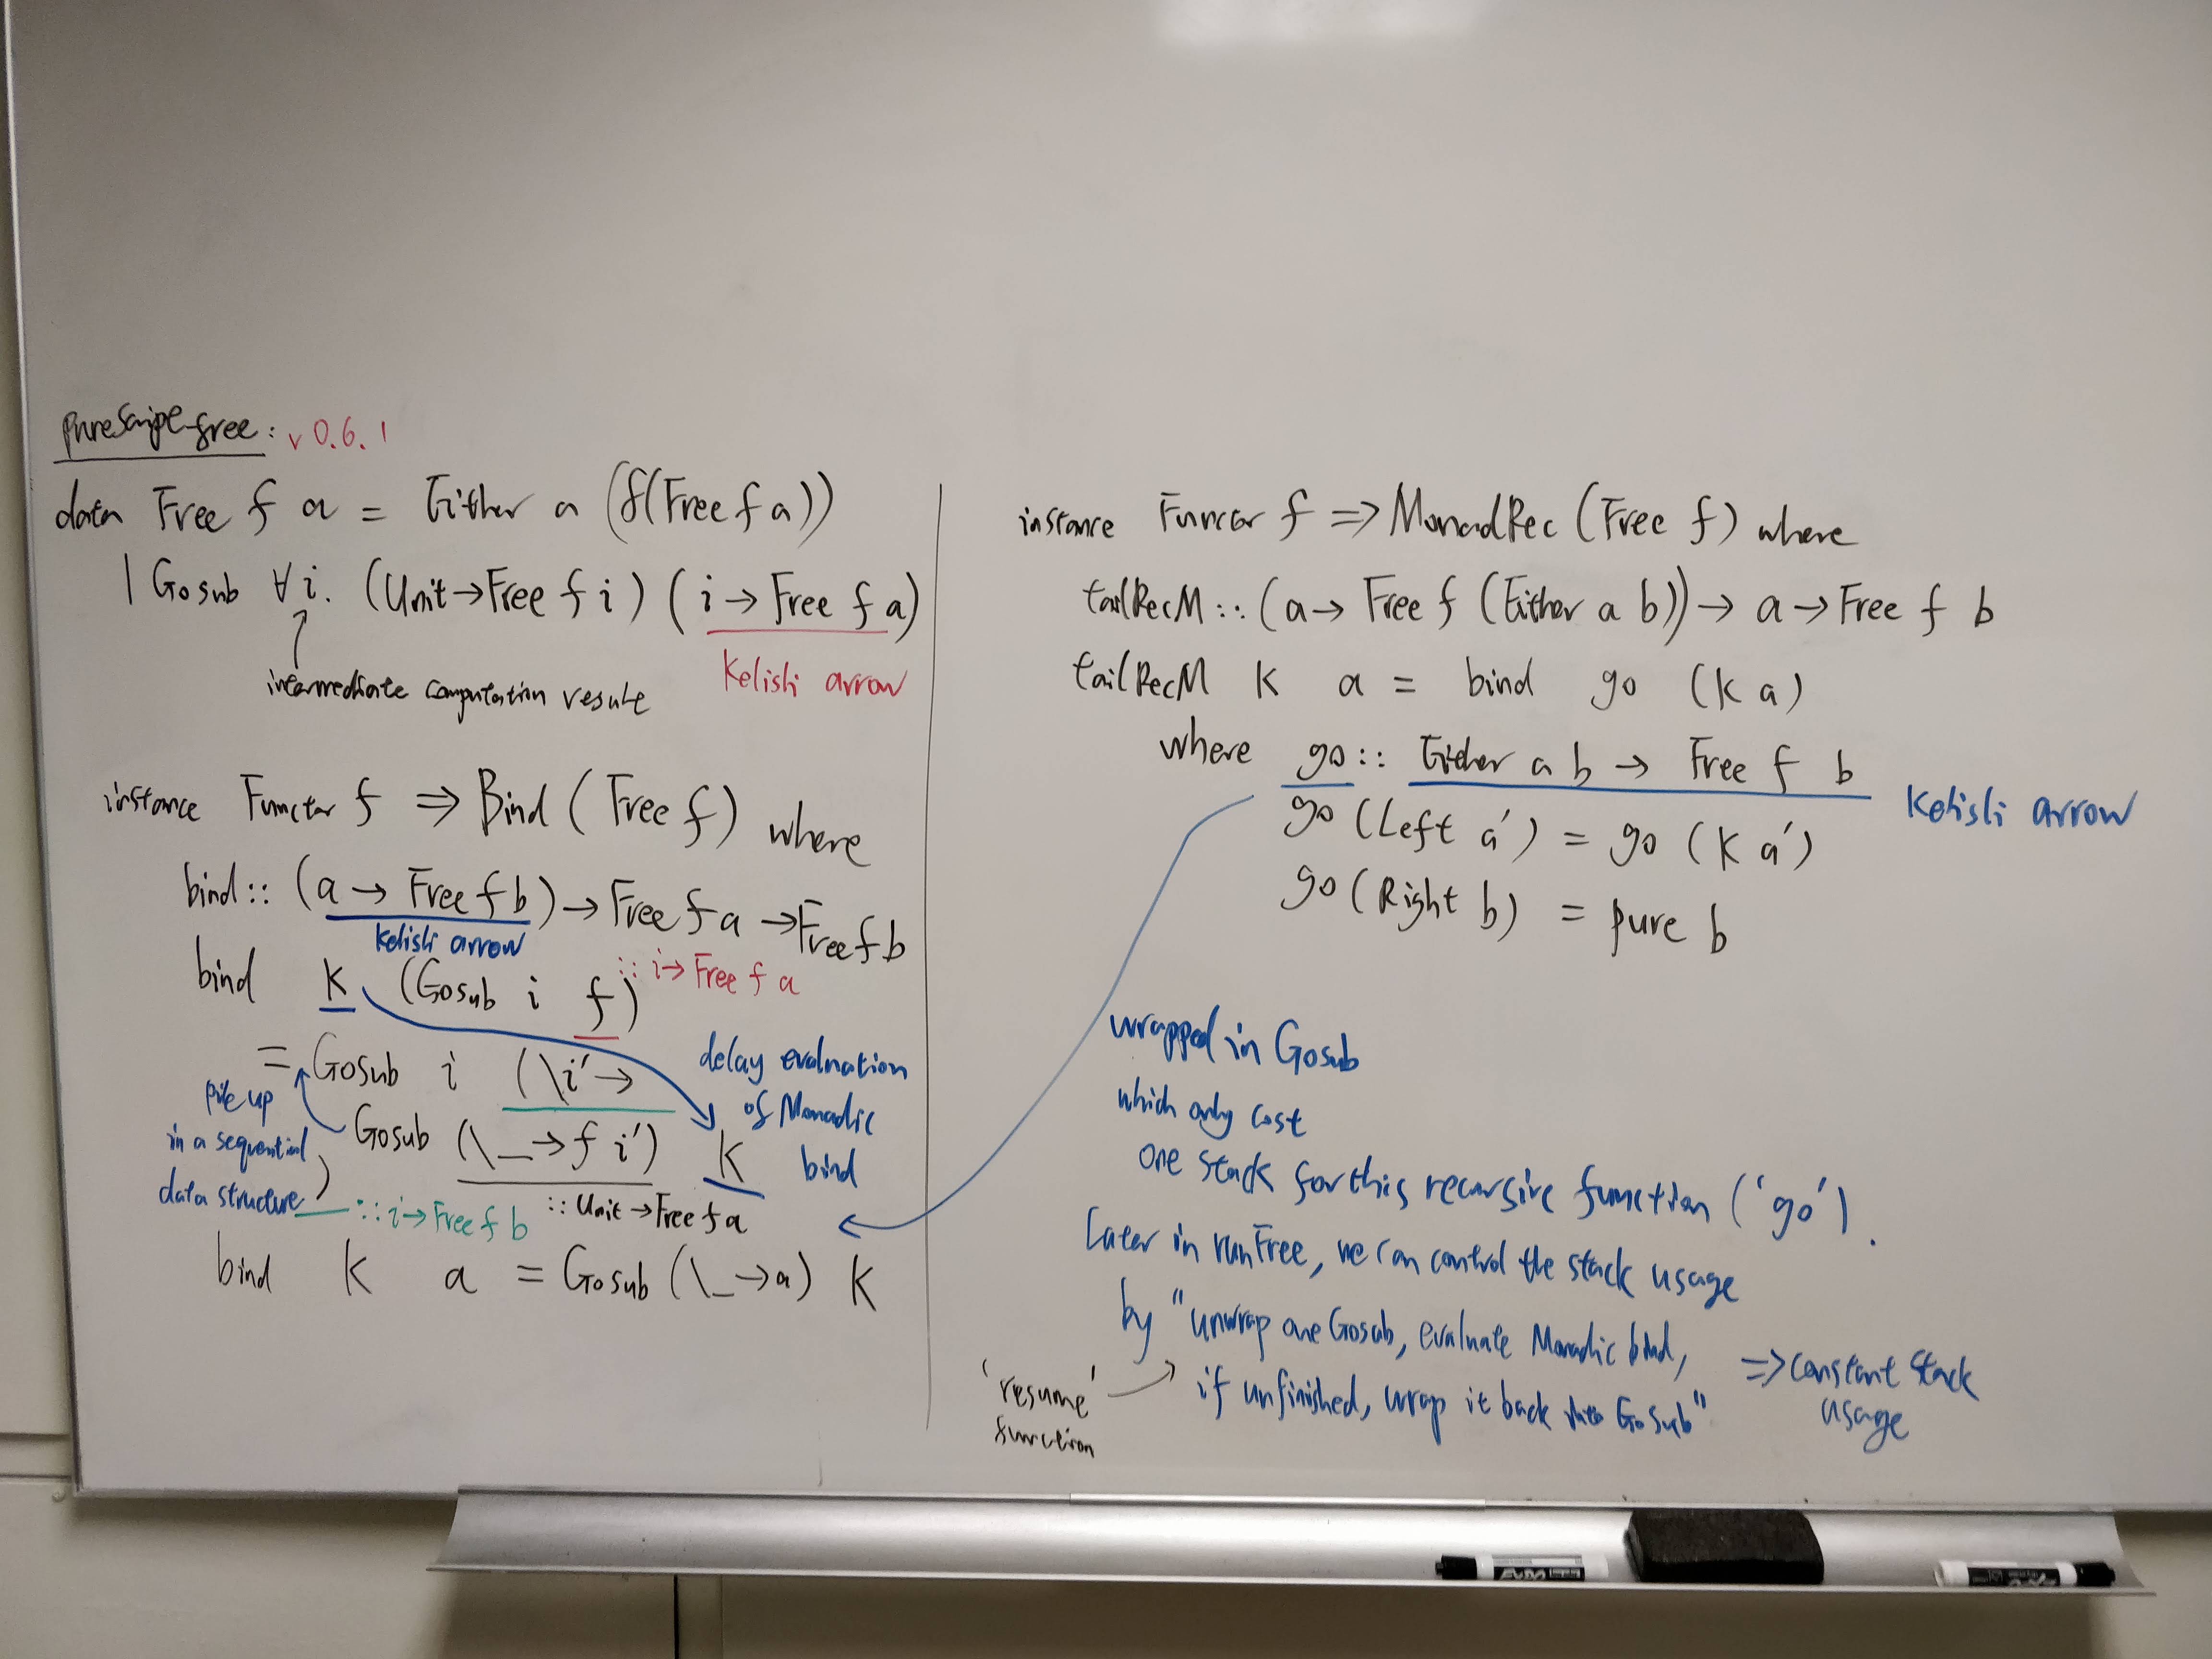 purescript-free: v 0.6.1
data Free f a = Either a (f(Free f a))
| Gosub ∀i. (Unit→Free f i) (i → Free f a)
Kelisli arrow
intermediate computation result
instance Functor f => Bind (Free f) where
bind:: (a → Free f b) → Free f a → Free f b
Kelisli arrow
bind k (Gosub i f) :: i→ Free f a
= Gosub i (\i' →
Gosub (\_→ f i') k
) :: i→ Free f b
:: Unit → Free f a
delay evaluation
of Monadic
bind
pile up
in a sequential
data structure
bind k a = Gosub (\_→a) k
instance Functor f => MonadRec (Free f) where
tailRecM:: (a→ Free f (Either a b)) → a → Free f b
tailRecM k a = bind go (k a)
where go:: Either a b → Free f b
Kelisli arrow
go (Left a') = go (k a')
go (Right b) = pure b
wrapped in Gosub
which only cost
one stack for this recursive function ('go').
Later in runFree, we can control the stack usage
by "unwrap one Gosub, evaluate Monadic bind,
if unfinished, wrap it back into Gosub"
=> constant stack
usage
'resume'
function